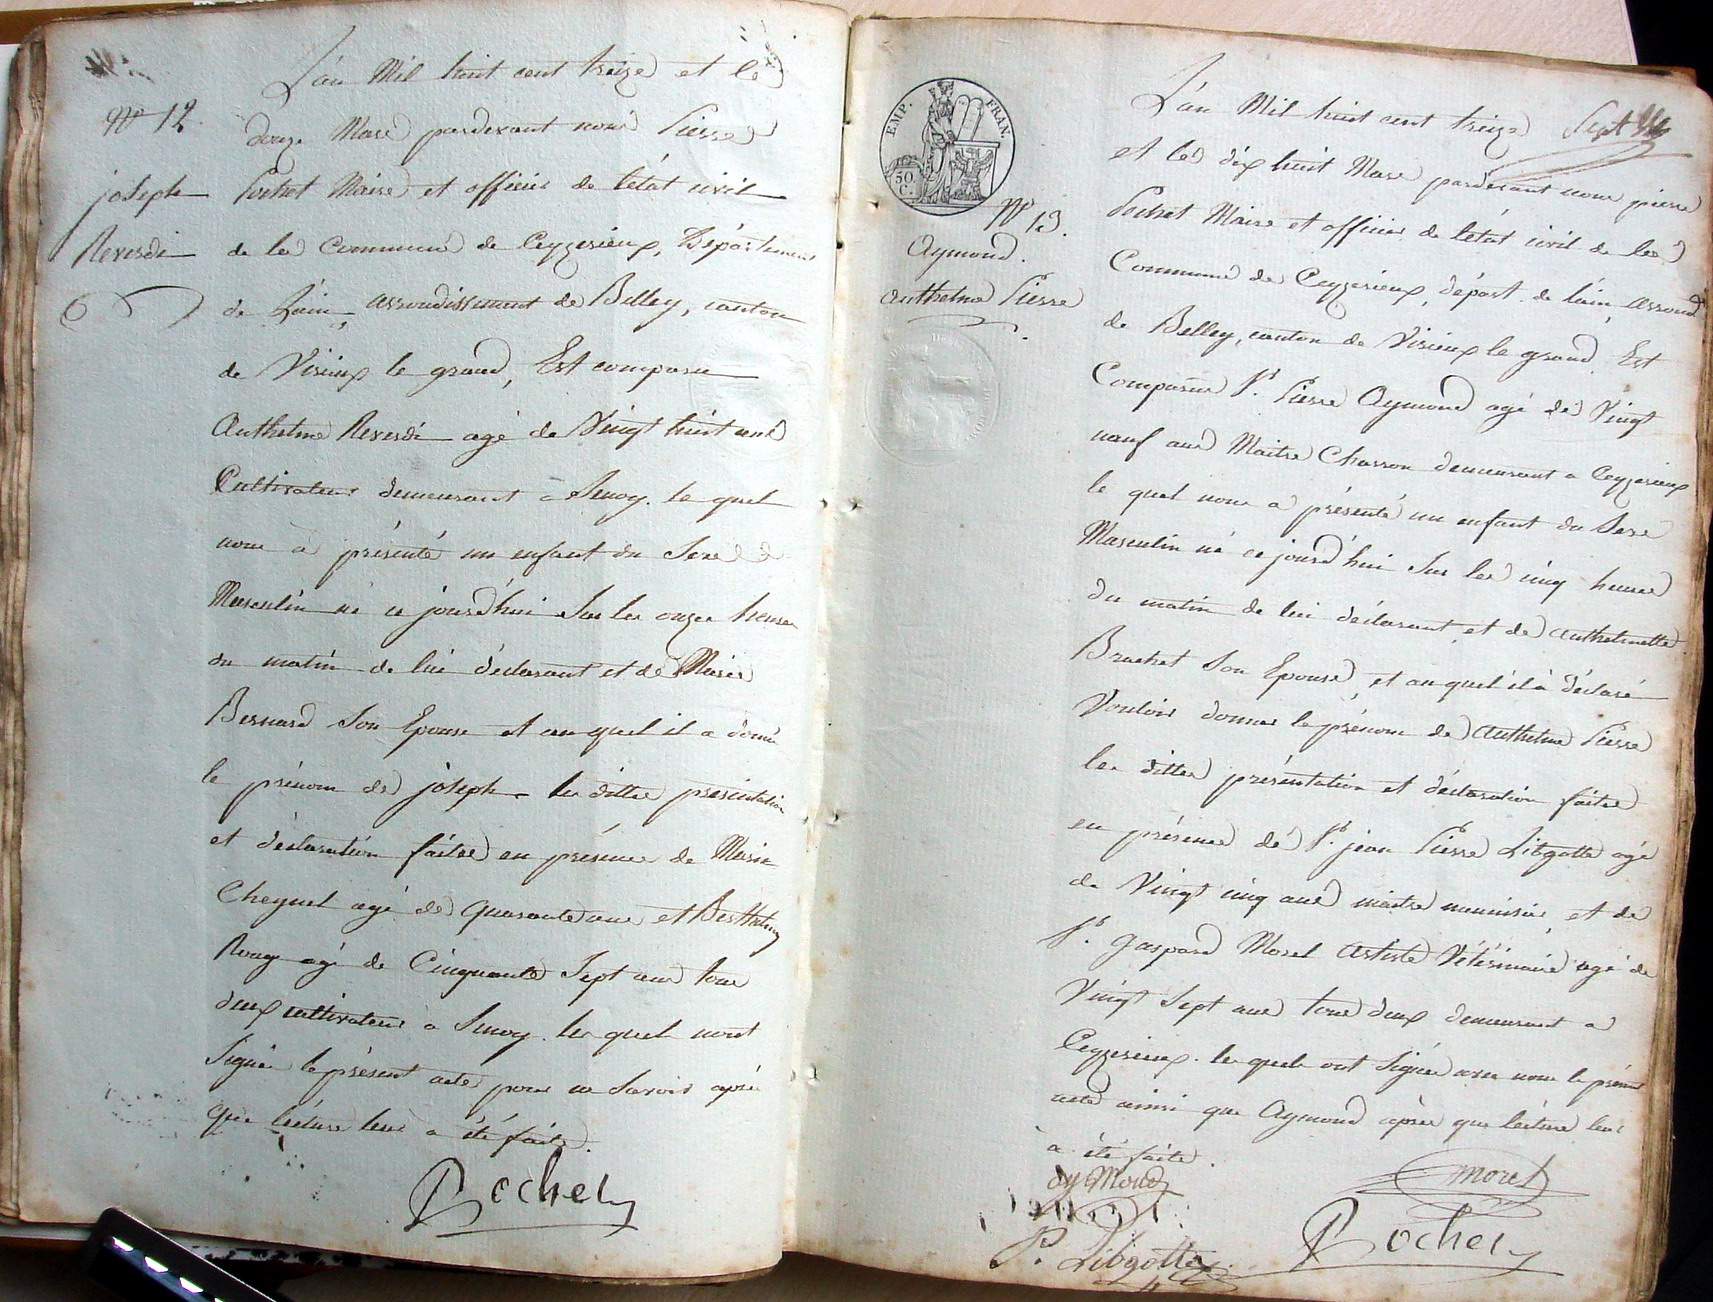 N° 12.
joseph
Reverdi
L'an Mil huit cent treize et le
douze Mars pardevant nous Pierre
Pochet Maire et officier de l'état civil
de la Commune de Ceyzerieux, Département
de L'ain, arrondissement de Belley, canton
de Virieux le grand, Est comparu
Anthelme Reverdi agé de Vingt huit ans
Cultivateur demeurant à le quel
nous a présenté un enfant du Sexe
Masculin né ce jourd'hui Sur les onze heures
du matin de lui déclarant et de Marie
Bernard Son Epouse et au quel il a donné
le prénom de joseph les dittes présentation
et déclaration faites en présence de Marin
agé de Quarante ans et Berthelmy
agé de Cinquante Sept ans tous
deux cultivateurs à les quels n'ont
Signé le présent acte pour ne Savoir après
que lécture leur a été faite.
Pochet
EMP. FRAN.
50 C.
N° 13.
Aymond.
Anthelme Pierre
L'an Mil huit cent treize Sept
et le dix huit Mars pardevant nous pierre
Pochet Maire et officier de l'état civil de la
Commune de Ceyzerieux, départ. de l'ain, arrond
de Belley, canton de Virieux le grand, Est
Comparu Sr. Pierre Aymond agé de Vingt
neuf ans Maitre Charron demeurant a Ceyzerieux
le quel nous a présenté un enfant du Sexe
Masculin né ce jourd'hui Sur les cinq heures
du matin de lui déclarant et de Anthelmette
Brachet Son Epouse, et au quel il à déclaré
Vouloir donner le prénom de Anthelme Pierre
les dittes présentation et déclaration faites
en présence de Sr. jean Pierre Libgotte agé
de Vingt cinq ans maitre menuisier et de
Sr. Gaspard Moret Artiste Vétérinaire agé de
Vingt Sept ans tous deux demeurant a
Ceyzerieux. les quels ont Signé avec nous le présent
acte ainsi que Aymond après que lécture leur
a été faite.
ayMond
moret
P. Libgotte
Pochet